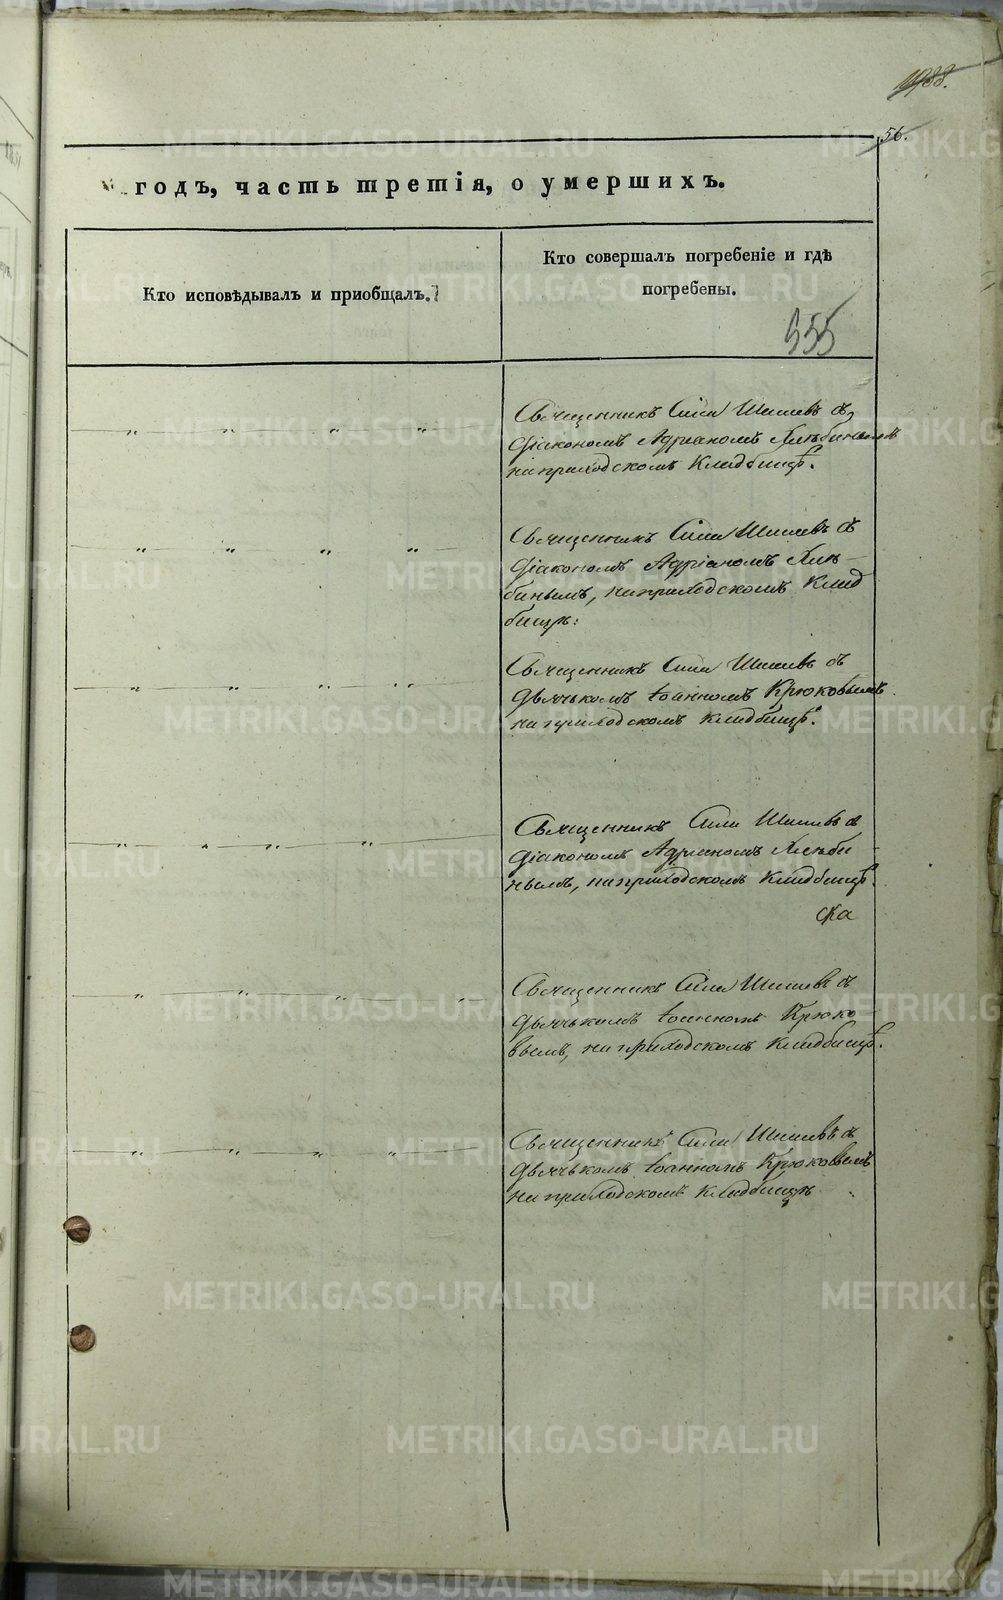 1988.
56.
годъ, часть третія, о умершихъ.
Кто исповѣдывалъ и приобщалъ.
Кто совершалъ погребеніе и гдѣ
погребены.
555
Священникъ Сила Шишевъ съ
Діакономъ Адріаномъ Хлѣбинымъ
на приходскомъ Кладбищѣ.
Священникъ Сила Шишевъ съ
Діакономъ Адріаномъ Хлѣ-
бинымъ, на приходскомъ Клад
бищѣ:
Священникъ Сила Шишевъ съ
Дьячькомъ Іоанномъ Крюковымъ
на приходскомъ кладбищѣ.
Священникъ Сила Шишевъ съ
Діакономъ Адріаномъ Хлѣби-
нымъ, на приходскомъ Кладбищѣ.
ска
Священникъ Сила Шишевъ съ
Дьячькомъ Іоанномъ Крюко-
вымъ, на приходскомъ Кладбищѣ.
Священникъ Сила Шишевъ съ
Дьячькомъ Іоанномъ Крюковымъ
на приходскомъ Кладбищѣ
METRIKI.GASO-URAL.RU